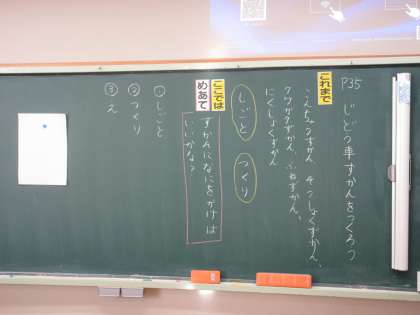 P35 じどう車ずかんをつくろう
これまで
こんちゅうずかん、そうしょくずかん、
クワガタずかん、ふねずかん、
にくしょくずかん
しごと つくり
ここでは
めあて
ずかんになにをかけば
いいかな？
①しごと
②つくり
③え